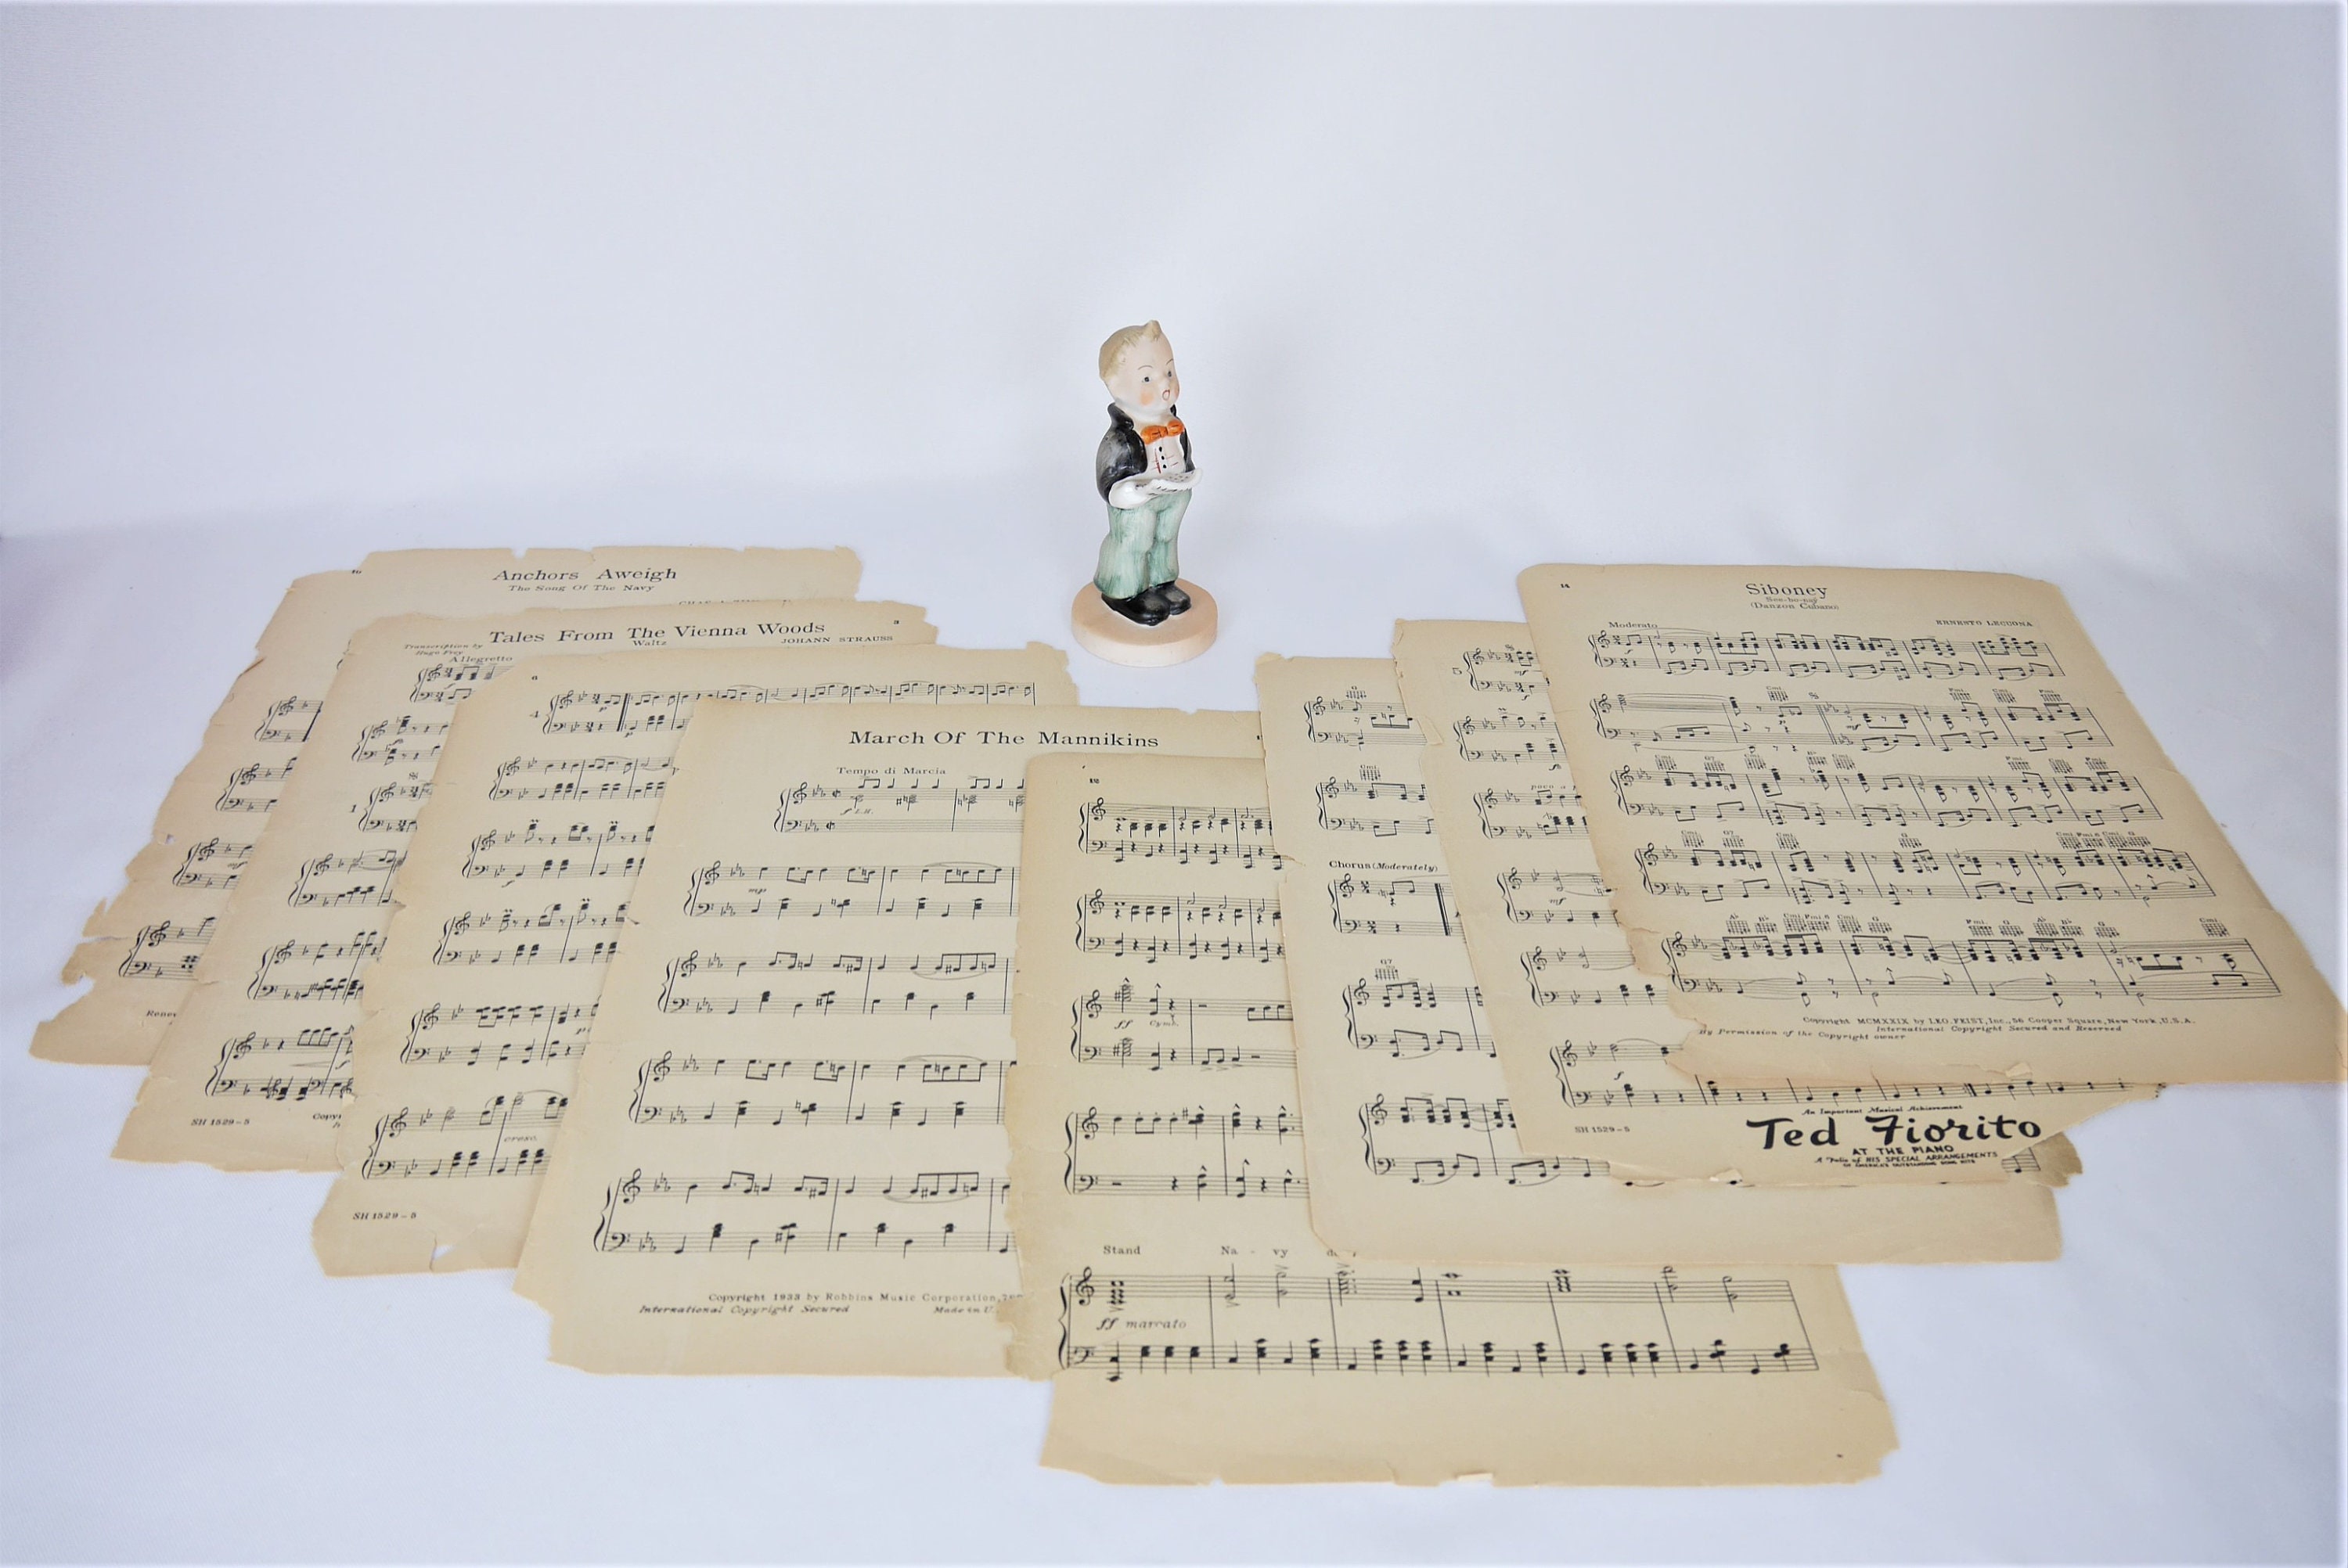 10
Anchors Aweigh
The Song Of The Navy
3
Tales From The Vienna Woods
Waltz
JOHANN STRAUSS
Transcription by
Hugo Frey
Allegretto
1
SH 1529-5
6
4
cresc.
SH 1529-5
March Of The Mannikins
Tempo di Marcia
f L.H.
mp
Copyright 1933 by Robbins Music Corporation,
International Copyright Secured
Made in U.
12
ff
Cymb.
Stand Na - vy
ff marcato
G
Chorus (Moderately)
G7
5
mf
f
SH 1529-5
An Important Musical Achievement
Ted Fiorito
AT THE PIANO
A Folio of HIS SPECIAL ARRANGEMENTS
14
Siboney
(Danzon Cubano)
Moderato
ERNESTO LECUONA
Copyright MCMXXIX by LEO FEIST, Inc., 56 Cooper Square, New York, U.S.A.
International Copyright Secured and Reserved
By Permission of the Copyright owner